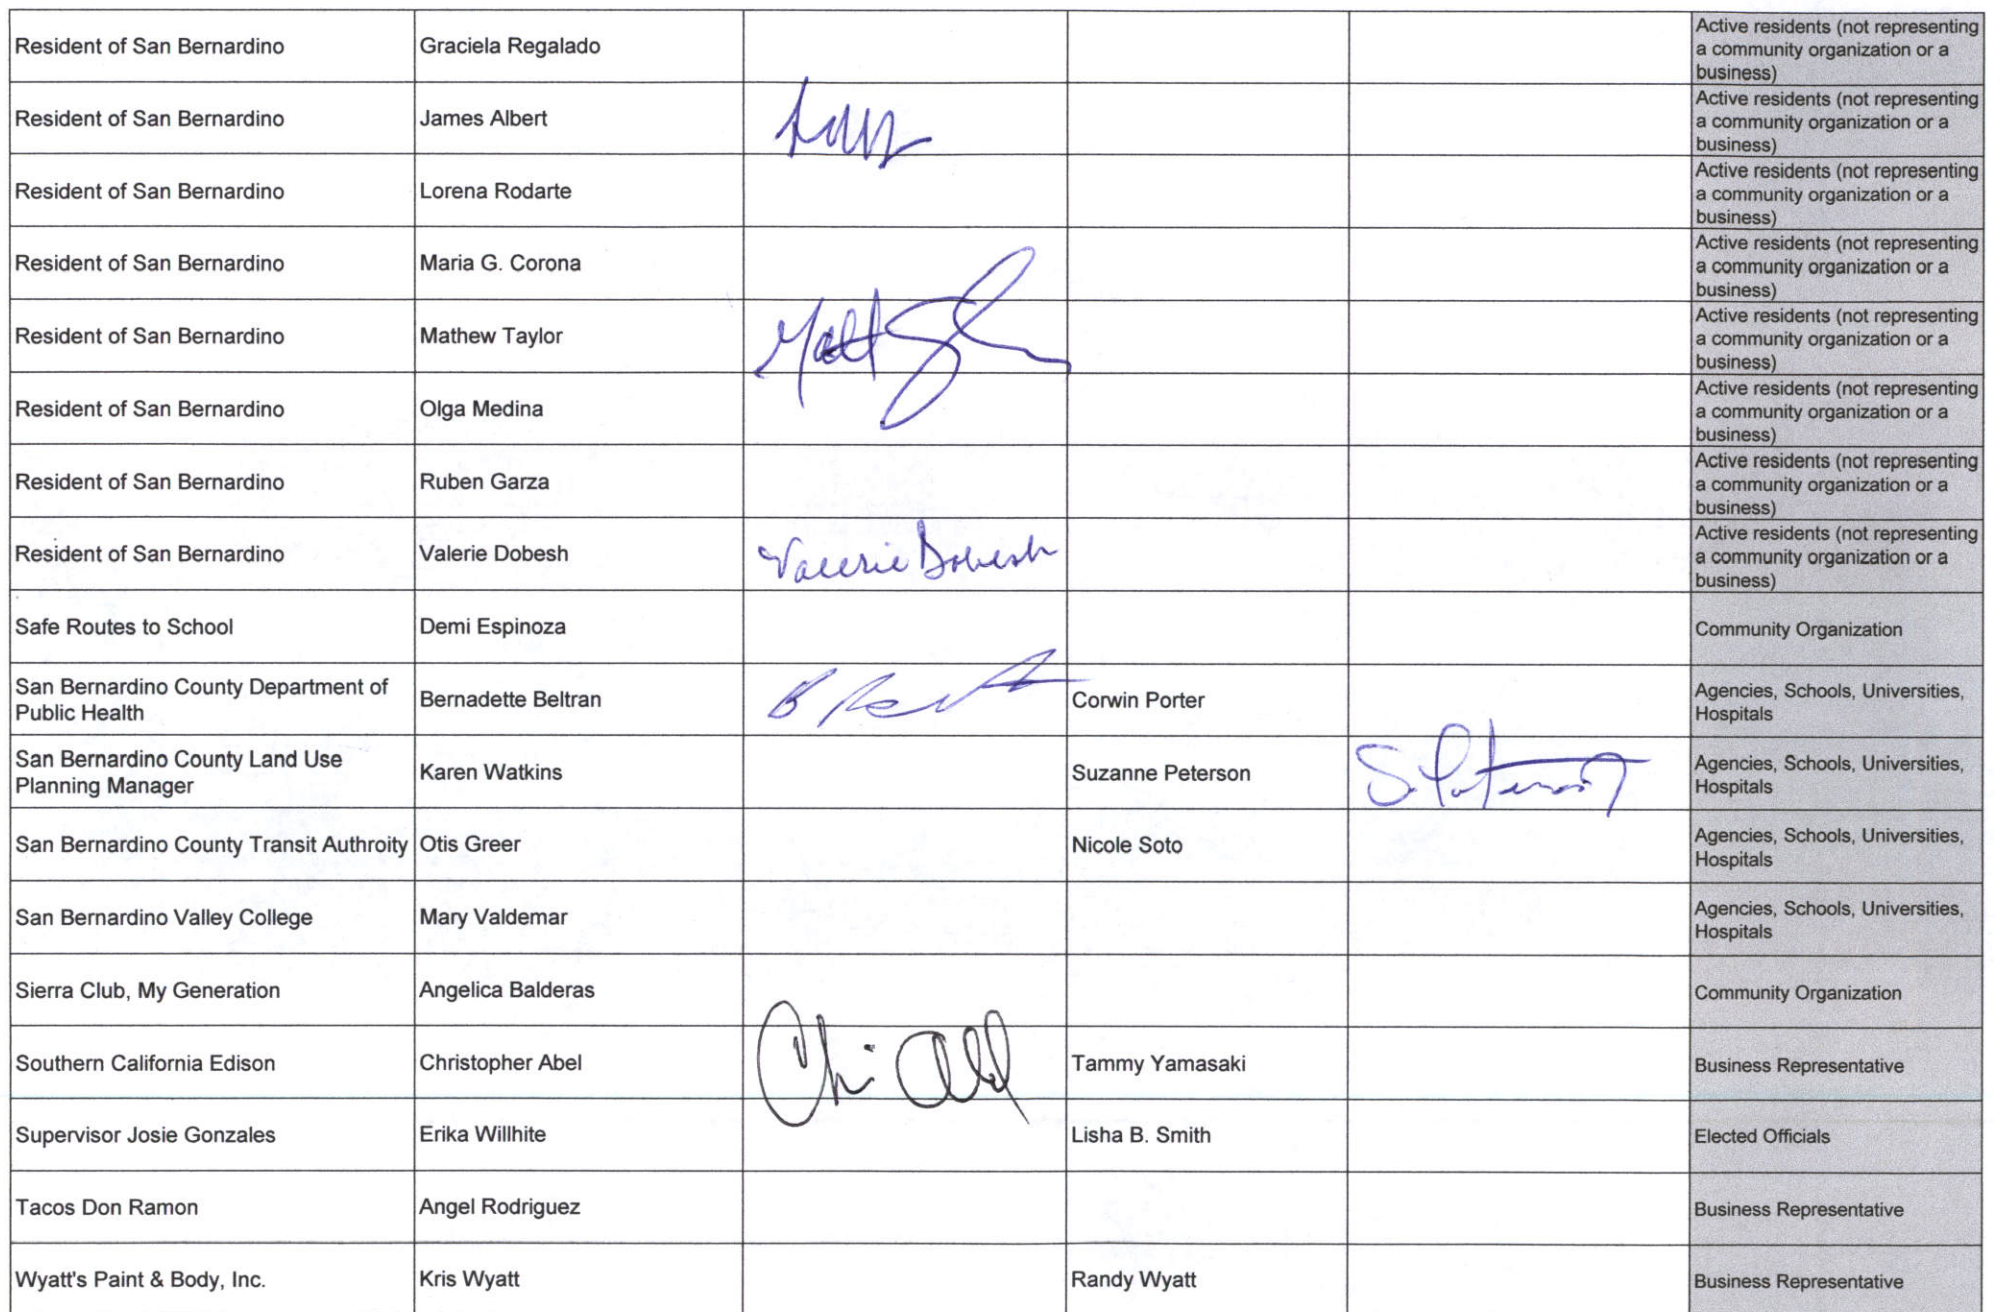 Resident of San Bernardino Graciela Regalado Active residents (not representing
a community organization or a
business)
Resident of San Bernardino James Albert Active residents (not representing
a community organization or a
business)
Resident of San Bernardino Lorena Rodarte Active residents (not representing
a community organization or a
business)
Resident of San Bernardino Maria G. Corona Active residents (not representing
a community organization or a
business)
Resident of San Bernardino Mathew Taylor Matt Active residents (not representing
a community organization or a
business)
Resident of San Bernardino Olga Medina Active residents (not representing
a community organization or a
business)
Resident of San Bernardino Ruben Garza Active residents (not representing
a community organization or a
business)
Resident of San Bernardino Valerie Dobesh Valerie Dobesh Active residents (not representing
a community organization or a
business)
Safe Routes to School Demi Espinoza Community Organization
San Bernardino County Department of
Public Health Bernadette Beltran B Corwin Porter Agencies, Schools, Universities,
Hospitals
San Bernardino County Land Use
Planning Manager Karen Watkins Suzanne Peterson S. Peterson Agencies, Schools, Universities,
Hospitals
San Bernardino County Transit Authroity Otis Greer Nicole Soto Agencies, Schools, Universities,
Hospitals
San Bernardino Valley College Mary Valdemar Agencies, Schools, Universities,
Hospitals
Sierra Club, My Generation Angelica Balderas Community Organization
Southern California Edison Christopher Abel Chris Abel Tammy Yamasaki Business Representative
Supervisor Josie Gonzales Erika Willhite Lisha B. Smith Elected Officials
Tacos Don Ramon Angel Rodriguez Business Representative
Wyatt's Paint & Body, Inc. Kris Wyatt Randy Wyatt Business Representative